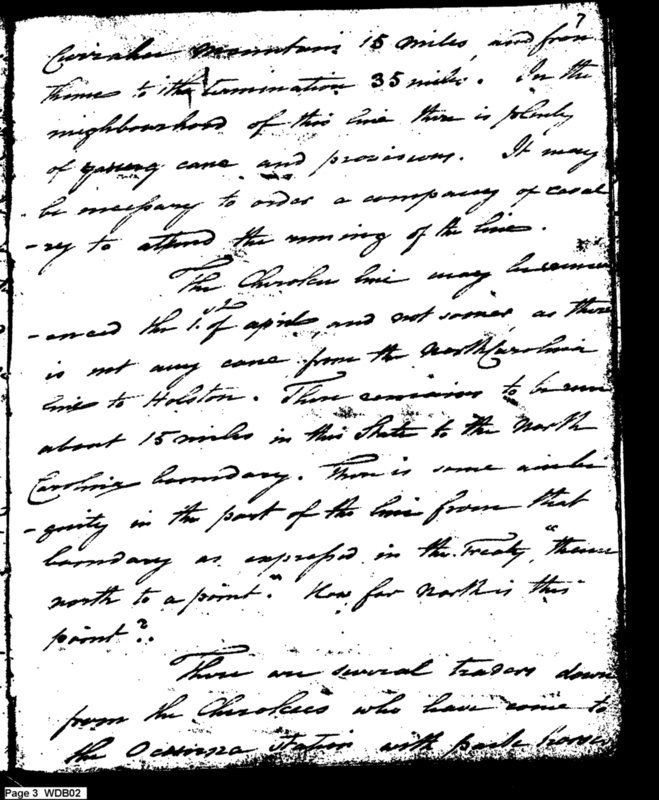 7
Currahee Mountain 15 miles, and from
thence to its termination 35 miles. In the
neighbourhood of this line there is plenty
of young cane and provisions. It may
be necessary to order a company of caval
-ry to attend the runing of the line.
The Cherokee line may be comm
-enced the 1st of april, and not sooner as there
is not any cane from the North Carolina
line to Holston. There remains to be run
about 15 miles in this State to the North
Carolina boundary. There is some ambi
-guity in the part of the line from that
boundary as expressed in the Treaty, "thence
north to a point." How far North is this
point?.
There are several traders down
from the Cherokees who have come to
the Oconna Station with pack horse
Page 3 WDB02